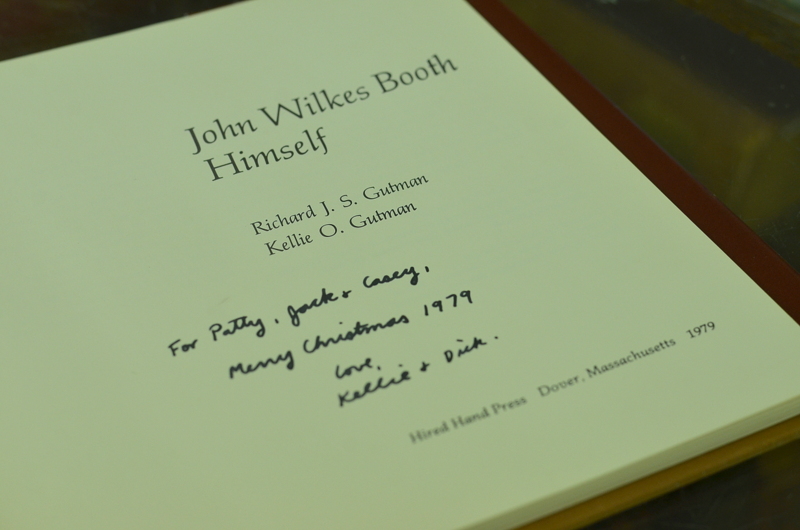 John Wilkes Booth
Himself
Richard J. S. Gutman
Kellie O. Gutman
For Patty, Jack & Casey,
Merry Christmas 1979
Love,
Kellie & Dick.
Hired Hand Press Dover, Massachusetts 1979